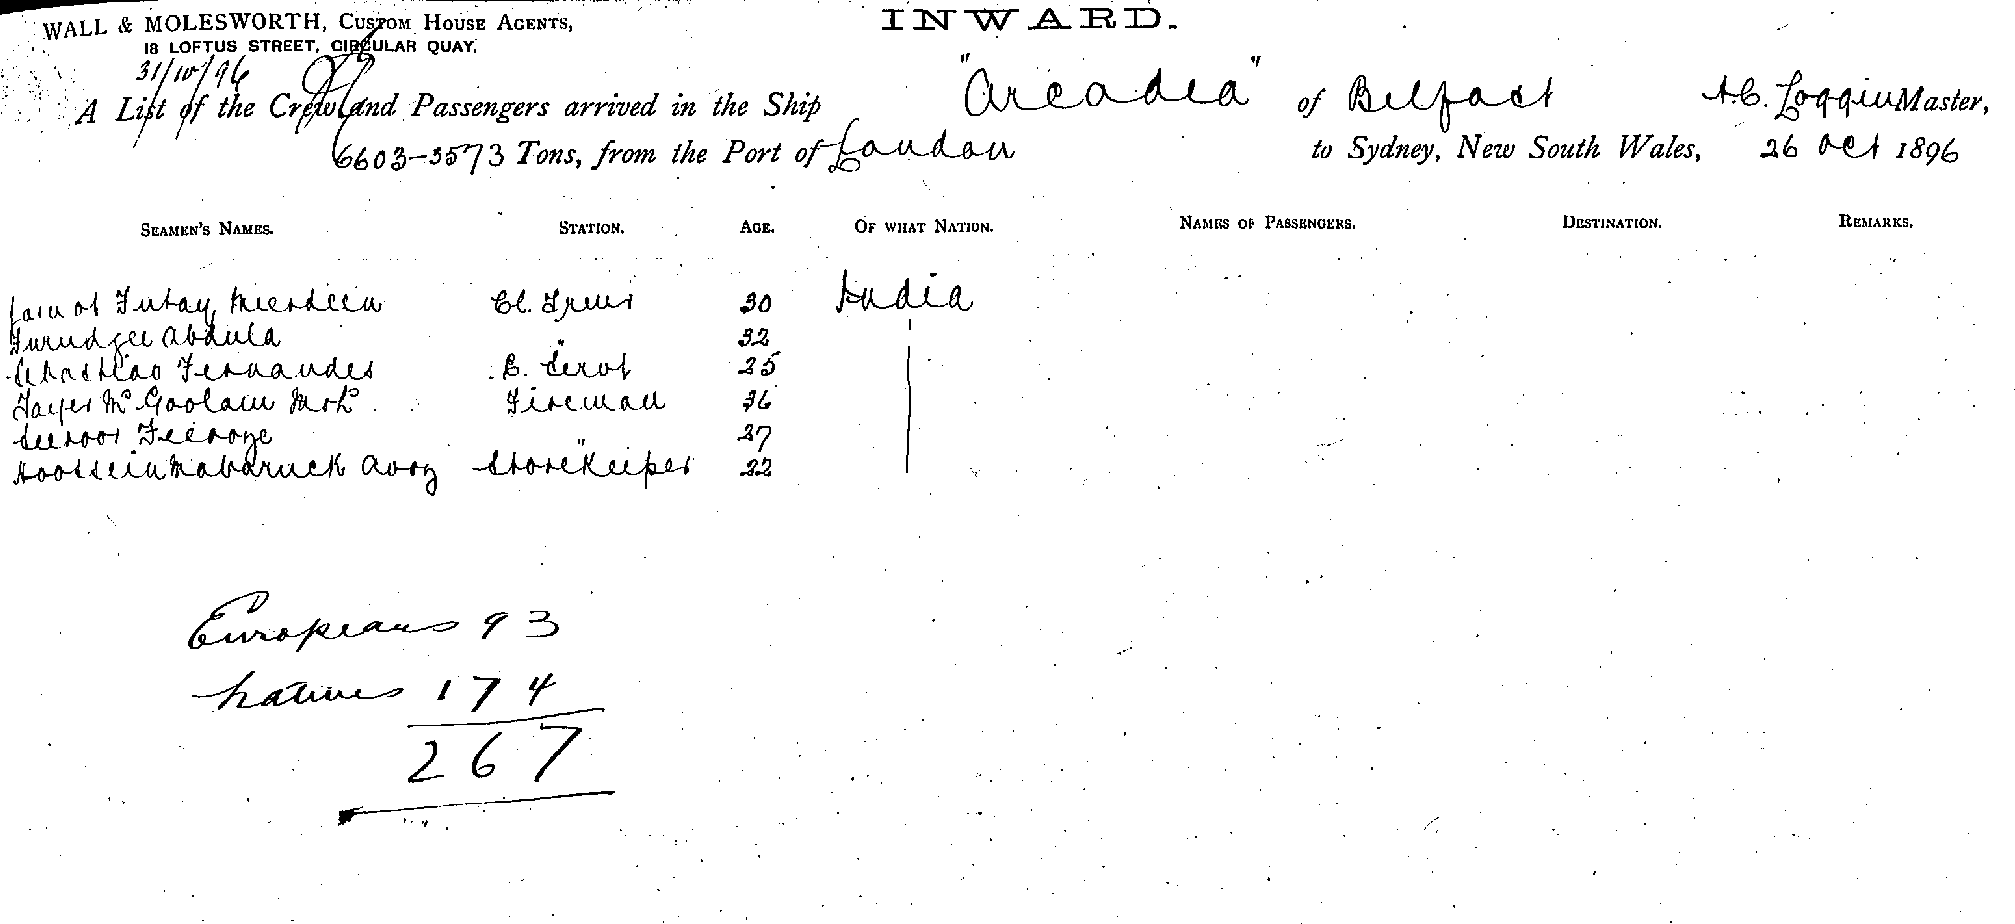 INWARD.
WALL & MOLESWORTH, CUSTOM HOUSE AGENTS,
18 LOFTUS STREET, CIRCULAR QUAY.
31/10/96
A List of the Crew and Passengers arrived in the Ship "Arcadia" of Belfast A.C. Loggin Master,
6603-3573 Tons, from the Port of London to Sydney, New South Wales, 26 Oct 1896
SEAMEN'S NAMES. STATION. AGE. OF WHAT NATION. NAMES OF PASSENGERS. DESTINATION. REMARKS.
Meerdeen 30 India
Abdula " 32
Fernandes 25
Goolam Fireman 36
Feeroze " 27
Hoossein Mabaruck Storekeeper 22
Europeans 93
Natives 174
267